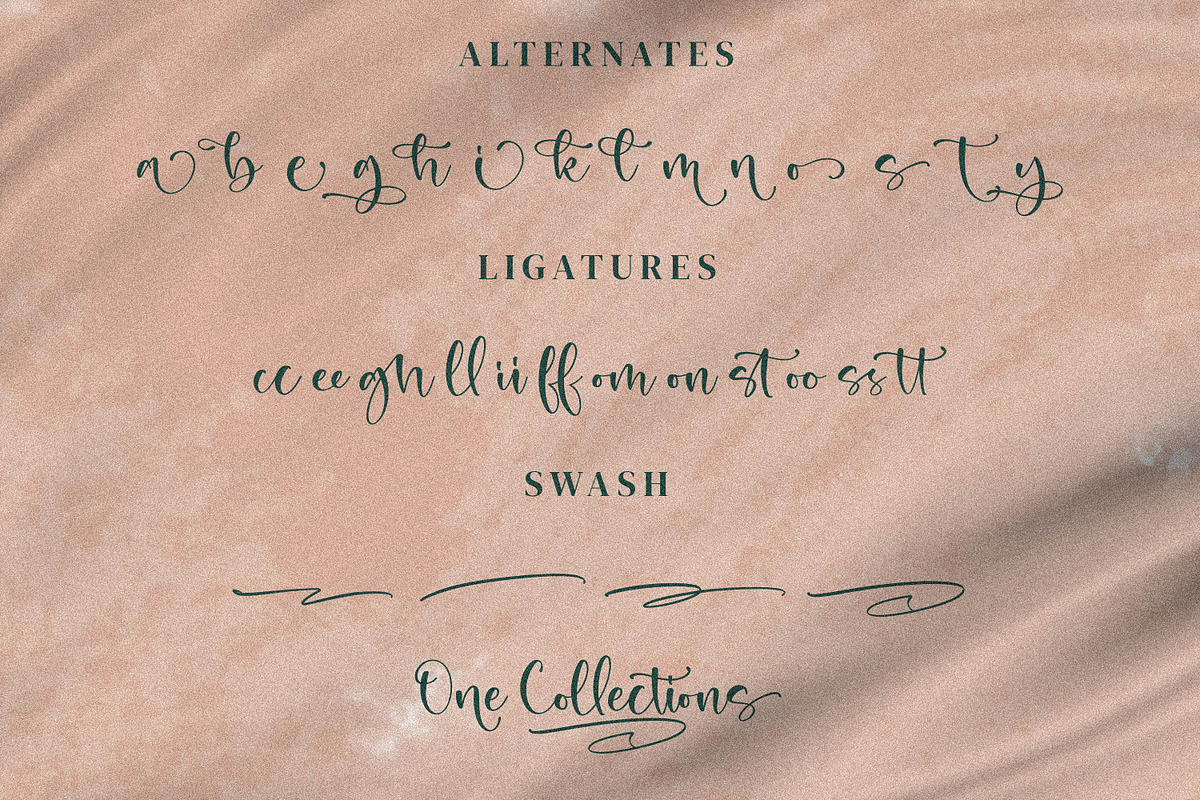 ALTERNATES
a b e g h i k t m n o s t y
LIGATURES
cc ee gh ll ii ff om on st oo ss tt
SWASH
One Collections